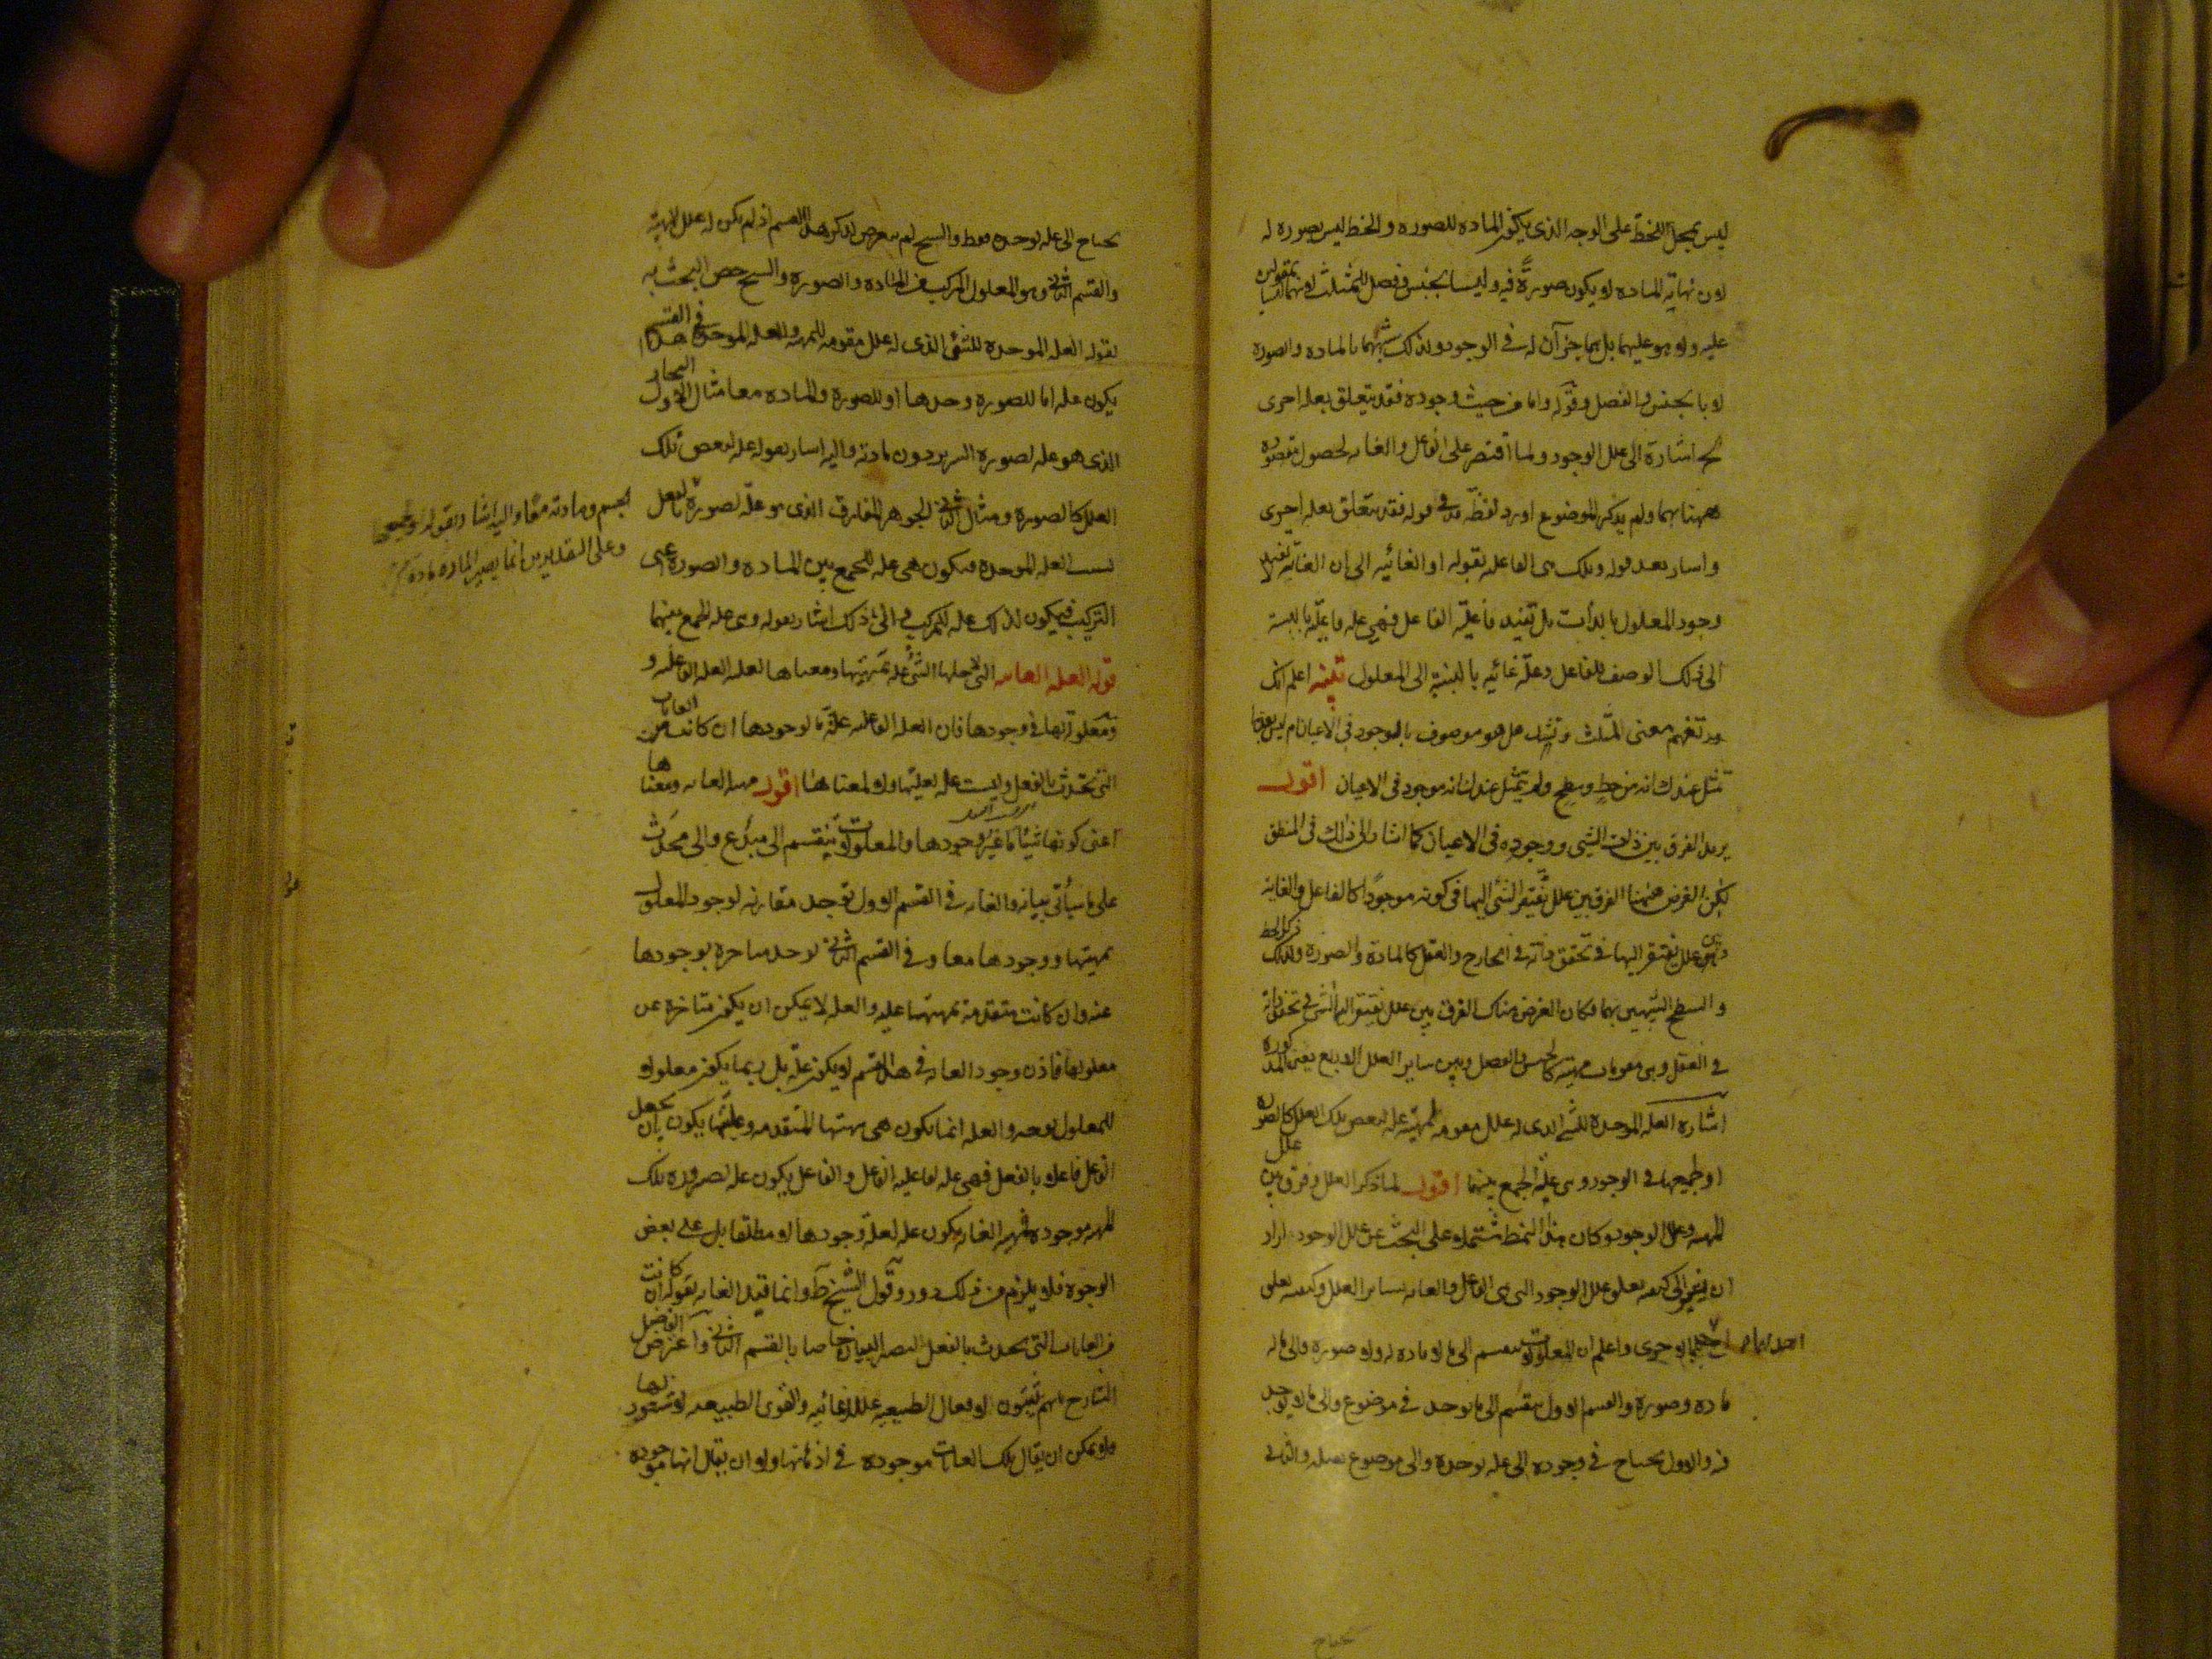 ليس بمحل للخط على الوجه الذى يكون المادة للصورة والخط ليس بصورة له
لان نهاية المادة لا يكون صورة فيه وليسا بجنس وفصل للمثلث لانهما ليسا بمقولين
عليه ولا هو عليهما بل هما جزآن له فى الوجود ولذلك شبههما بالمادة والصورة
لا بالجنس والفصل وقوله واما من حيث وجوده فقد يتعلق بعلة اخرى
الخ اشارة الى علل الوجود ولما اقتصر على الفاعل والغاية لحصول مقصوده
ههنا بهما ولم يذكر الموضوع اورد لفظة قد فى قوله فقد يتعلق بعلة اخرى
واشار بعد قوله وتلك هى الفاعلة بقوله او الغائية الى ان الغاية لا تفيد
وجود المعلول بالذات بل تفيد فاعلية الفاعل فهى علة فاعلية بالنسبة
الى ذلك الوصف للفاعل وعلة غائية بالنسبة الى المعلول تنبيه اعلم انك
قد تفهم معنى المثلث وتشك هل هو موصوف بالوجود فى الاعيان ام ليس بعد ما
تمثل عندك انه من خط وسطح ولم يتمثل عندك انه موجود فى الاعيان اقول
يريد الفرق بين ذات الشئ ووجوده فى الاعيان كما اشار الى ذلك فى المنطق
لكن الغرض ههنا الفرق بين علل يفتقر الشئ اليها فى كونه موجودا كالفاعل والغاية
وبين علل يفتقر اليها فى تحقق ذاته فى الخارج والعقل كالمادة والصورة ولذلك ذكر الخط
والسطح الشبيهين بهما وكان الغرض هناك الفرق بين علل يفتقر اليها الشئ فى تحقق ذاته
فى العقل وهى مقومات مهيته كالجنس والفصل وبين سائر العلل الاربع يعنى المذكورة
اشارة العلة الموجدة للشئ الذى له علل مقومة للمهية علة لبعض تلك العلل كالصورة
او لجميعها فى الوجود وهى علة الجمع بينهما اقول لما ذكر العلل وفرق بين علل
المهية وعلل الوجود وكان هذا النمط مشتملا على البحث عن علل الوجود اراد
ان يشير الى كيفية تعلق علل الوجود التى هى الفاعل والغاية بسائر العلل وكيفية تعلق
احداهما بالاخرى واعلم ان المعلولات تنقسم الى ما لا مادة له ولا صورة والى ما له
مادة وصورة والقسم الاول ينقسم الى ما يوجد فى موضوع والى ما لا يوجد
فيه والاول يحتاج فى وجوده الى علة توجده والى موضوع يقبله والثانى
يحتاج
يحتاج الى علة توجده فقط والشيخ لم يتعرض لذكر هذا القسم اذ لم يكن له علل لمهيته
والقسم الثانى وهو المعلول المركب من المادة والصورة والشيخ خص البحث به
بقوله العلة الموجدة للشئ الذى له علل مقومة للمهية والعلة الموجدة فى هذا القسم
يكون علة اما للصورة وحدها او للصورة والمادة معا مثال الاول النجار
الذى هو علة لصورة السرير دون مادته واليه اشار بقوله علة لبعض تلك
العلل كالصورة ومثال الثانى الجوهر المفارق الذى هو علة لصورة
الجسم ومادته معا واليه اشار بقوله او لجميعها
وعلى التقديرين انما يصير المادة مادة
بسبب العلة الموجدة فيكون هى علة للجمع بين المادة والصورة اعنى
التركيب فيكون لذلك علة للمركب والى ذلك اشار بقوله وهى علة الجمع بينهما
قوله العلة الغاية التى لاجلها الشئ علة بمهيتها ومعناها لعلية العلة الفاعلة و
معلولة لها فى وجودها فان العلة الفاعلة علة ما لوجودها ان كانت من الغايات
التى تحدث بالفعل وليست علة لعليتها ولا لمعناها اقول مهية الغاية ومعناها
اعنى كونها شيئا ما غير وجودها والمعلولات ينقسم الى مبدع والى محدث
على ما سيأتى بيانه والغاية فى القسم الاول توجد مقارنة لوجود المعلول
بمهيتها ووجودها معا وفى القسم الثانى لا توجد متأخرة بوجودها
عنه وان كانت متقدمة بمهيتها عليه والعلة لا يمكن ان يكون متأخرة عن
معلولها فاذن وجود الغاية فى هذا القسم لا يكون علة بل ربما يكون معلولا
للمعلول بوجه والعلة انما يكون هى مهيتها المتقدمة وعليتها يكون بان يجعل
الفاعل فاعلا بالفعل فهى علة لفاعلية الفاعل والفاعل يكون علة لصيرورة تلك
المهية موجودة فمهية الغاية يكون علة لعلة وجودها لا مطلقا بل على بعض
الوجوه فلا يلزم من ذلك دور وقول الشيخ ظاهر وانما قيد الغاية بقوله ان كانت
من الغايات التى تحدث بالفعل ليصير البيان خاصا بالقسم الثانى واعترض الفاضل
الشارح بانهم يثبتون للافعال الطبيعية عللا غائية والقوى الطبيعية لا شعور لها
فلا يمكن ان يقال تلك الغايات موجودة فى اذهانها ولا ان يقال انها موجودة